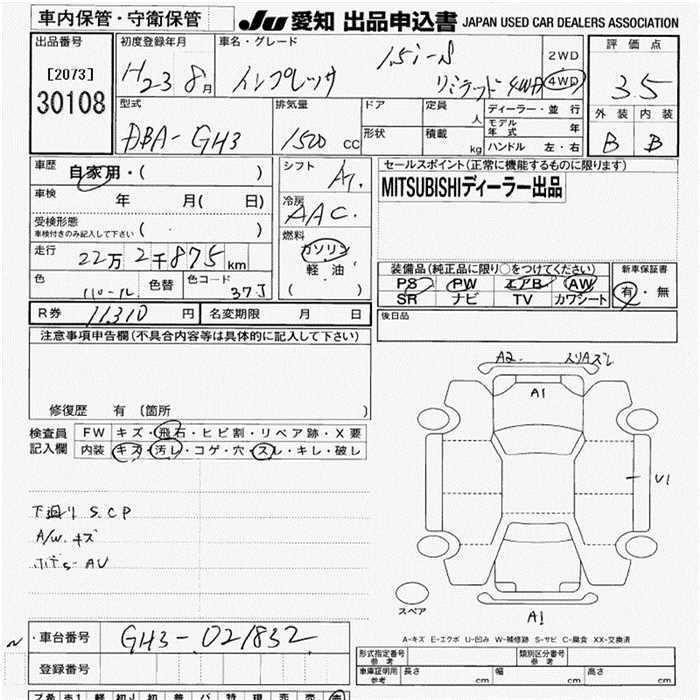 車内保管・守衛保管
JU 愛知 出品申込書 JAPAN USED CAR DEALERS ASSOCIATION
出品番号
[2073]
30108
初度登録年月
H23 8月
車名・グレード
1.5i-S
インプレッサ リミテッド 4WD
2WD
4WD
評価点
3.5
外装 内装
B B
型式
DBA-GH3
排気量
1500 cc
ドア
形状
定員 人
積載 kg
ディーラー・並行
モデル年式 年
ハンドル 左・右
車歴 自家用・( )
車検 年 月( 日)
受検形態
車検付きのみ記入して下さい ( )
走行 22万2千875km
色 パール 色替 色コード 37J
シフト AT
冷房 AAC
燃料
ガソリン
軽油
( )
セールスポイント(正常に機能するものに限ります)
MITSUBISHIディーラー出品
装備品(純正品に限り○をつけてください)
PS PW エアB AW
SR ナビ TV カワシート
新車保証書
有・無
R券 11,310 円 名変期限 月 日
後日品
注意事項申告欄(不具合内容等は具体的に記入して下さい)
修復歴 有 (箇所 )
検査員記入欄
FW キズ・飛石・ヒビ割・リペア跡・X要
内装 キズ・汚レ・コゲ・穴・スレ・キレ・破レ
下廻り S.C.P
A/W キズ
A2.
A1
U1
A1
スペア
A-キズ E-エクボ U-凹み W-補修跡 S-サビ C-腐食 XX-交換済
車台番号 GH3-021832
登録番号
形式指定番号 参考
類別区分番号 参考
車庫証明用 参考 長さ cm 幅 cm 高さ cm